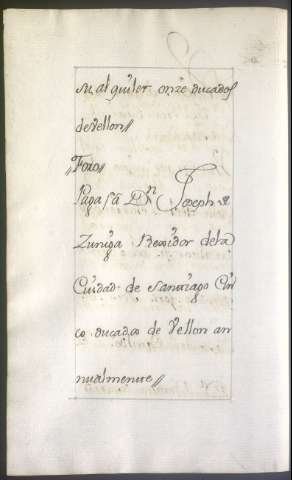 su alquiler onze ducados
de vellon//
//Foro//
Paga Dn Joseph
Zuniga Rexidor dela
Ciudad de Santiago Cin
co ducados de Vellon an
nualmente//